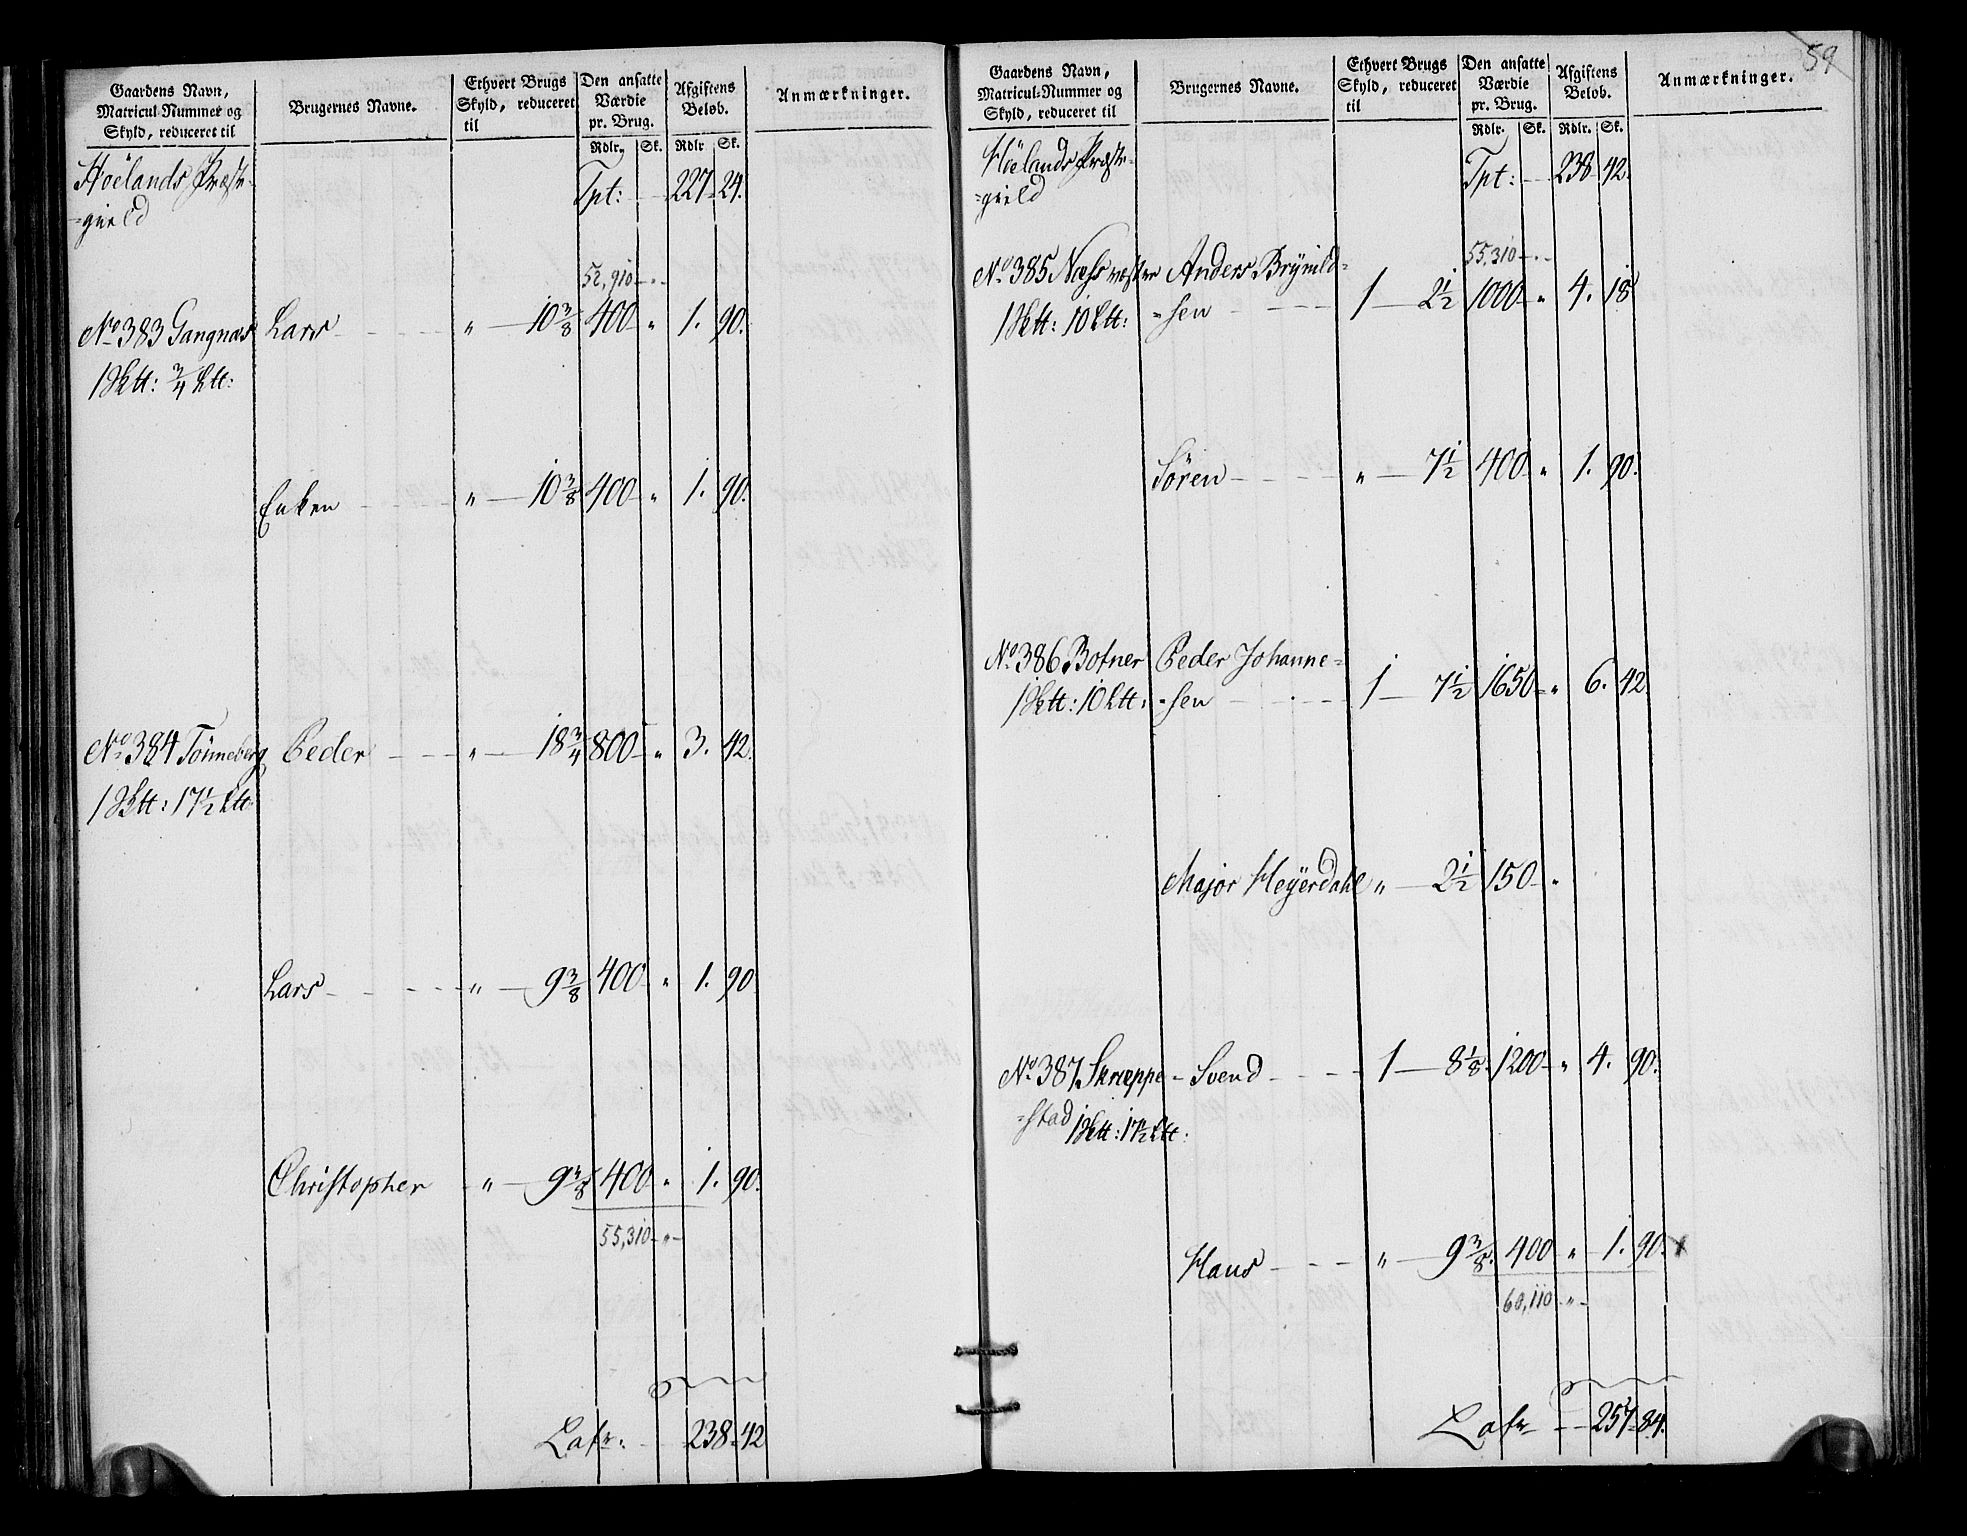 Gaardens Navn, Matricul-Nummer og Skyld, reduceret til | Brugernes Navne. | Ethvert Brugs Skyld, reduceret til | Den ansatte Værdie pr. Brug. Rdlr. Sk. | Afgiftens Beløb. Rdlr Sk. | Anmærkninger.
Höelands Præste-
=gield
Tpt: 227 24.
52,910 - " -
No 383 Gangnæs Lars " 10 3/8 400 " 1. 90.
1 Sktt: 3/4 Ltt:
Enken " 10 3/8 400 " 1. 90.
No 384 Tönneberg Peder " 18 3/4 800 " 3. 42.
1 Sktt: 17 1/2 Ltt:
Lars " 9 3/8 400 " 1. 90
Christopher " 9 3/8 400 " 1. 90.
55,310 - " -
Latr: 238 = 42
59
Gaardens Navn, Matricul-Nummer og Skyld, reduceret til | Brugernes Navne. | Ethvert Brugs Skyld, reduceret til | Den ansatte Værdie pr. Brug. Rdlr. Sk. | Afgiftens Beløb. Rdlr. Sk. | Anmærkninger.
Höelands Præste-
=gield
Tpt: 238 42.
55,310 - " -
No 385 Næss vestre Anders Brynild=
1 Sktt: 10 Ltt: =sen 1 2 1/2 1000 " 4. 18
Sören " 7 1/2 400 " 1. 90.
No 386 Botner Peder Johanne=
1 Sktt: 10 Ltt: =sen 1 7 1/2 1650 " 6. 42
Major Heyerdahl " 2 1/2 150 "
No 387 Skræppe- Svend 1 8 1/8 1200 " 4. 90.
=stad 1 Sktt: 17 1/2 Ltt:
Hans " 9 3/8 400 " 1. 90.
60,110 - " -
Latr 257 = 84.